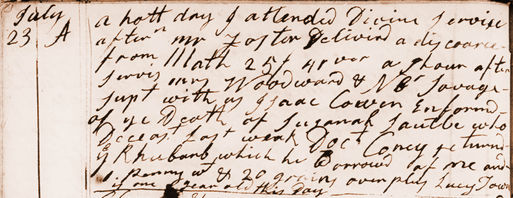 July 23 A a hott day I attended Divine Servise
aftern mr Foster Deliverd a discource
from Math 25 & 41 ver a hour after
Servis mrs Woodward & Savage
Supt with us Isaac Cowen Enformd
of ye Death of Susanah who
Deceast Last weak Doct Coney returnd
Rhubarb which he Borrowed of me and
1 Penny wt & 20 grains over plus Lucy Town
if one year old this Day